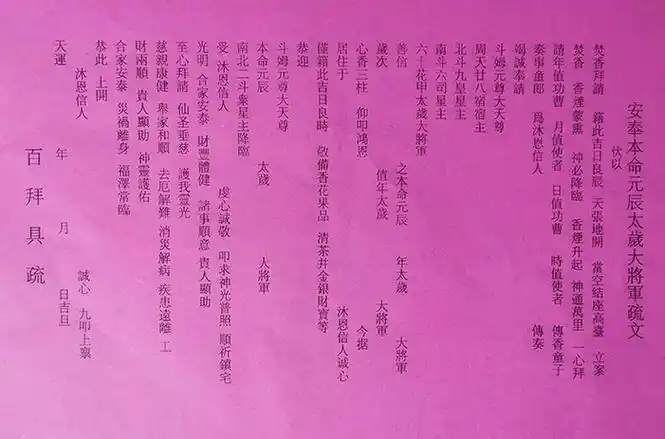 安奉本命元辰太歲大將軍疏文
伏以
焚香拜請 籍此吉日良辰 天張地開 當空結座高臺 立案
焚香 香煙蒙熏 神必降臨 香煙升起 神通萬里 一心拜
請年值功曹 月值使者 日值功曹 時值使者 傳香童子
奏事童郎 爲沐恩信人 傳奏
竭誠奉請
斗姆元尊大天尊
周天廿八宿宿主
北斗九皇星主
南斗六司星主
六十花甲太歲大將軍
善信 之本命元辰 年太歲 大將軍
歲次 值年太歲 大將軍
心香三柱 仰叩鴻恩 今据
居住于 沐恩信人誠心
僅籍此吉日良時 敬備香花果品 清茶井金銀財寶等
恭迎
斗姆元尊大天尊
本命元辰 太歲 大將軍
南北二斗衆星主降臨
受 沐恩信人 虔心誠敬 叩求神光普照 順祈鎮宅
光明 合家安泰 財豐體健 諸事順意 貴人顯助
至心拜請 仙圣垂慈 護我靈光
慈親康健 舉家和順 去厄解難 消災解病 疾患遠離 工
財兩順 貴人顯助 神靈護佑
合家安泰 災禍離身 福澤常臨
恭此 上開
沐恩信人 誠心 九叩上禀
天運 年 月 日吉旦
百拜具疏